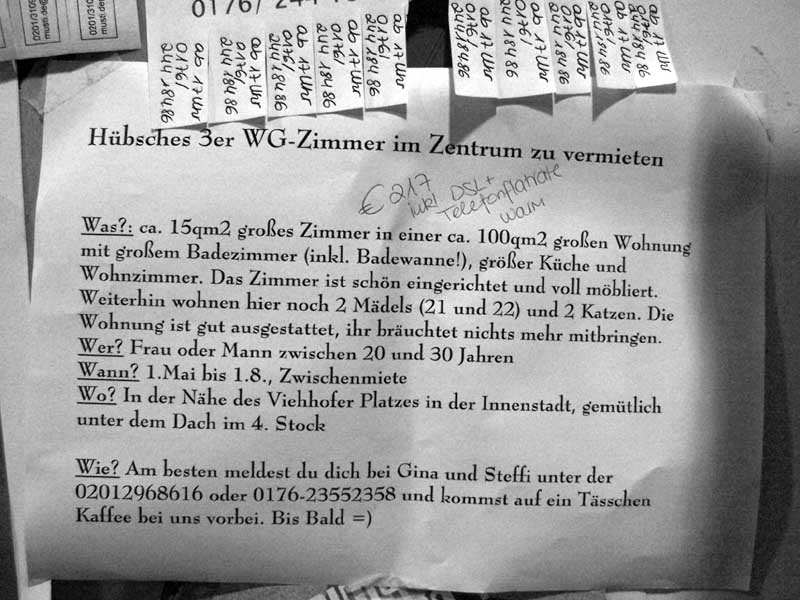 0201/3109
musti.de@
0201/310
musti.de
0176/
ab 17 Uhr
0176/
244 184 86
ab 17 Uhr
0176/
244 184 86
ab 17 Uhr
0176/
244 184 86
ab 17 Uhr
0176/
244 184 86
ab 17 Uhr
0176/
244 184 86
ab 17 Uhr
0176/
244 184 86
ab 17 Uhr
0176/
244 184 86
ab 17 Uhr
0176/
244 184 86
ab 17 Uhr
0176/
244 184 86
ab 17 Uhr
0176/
244 184 86
Hübsches 3er WG-Zimmer im Zentrum zu vermieten
€ 217
inkl DSL+
Telefonflatrate
warm
Was?: ca. 15qm2 großes Zimmer in einer ca. 100qm2 großen Wohnung
mit großem Badezimmer (inkl. Badewanne!), größer Küche und
Wohnzimmer. Das Zimmer ist schön eingerichtet und voll möbliert.
Weiterhin wohnen hier noch 2 Mädels (21 und 22) und 2 Katzen. Die
Wohnung ist gut ausgestattet, ihr bräuchtet nichts mehr mitbringen.
Wer? Frau oder Mann zwischen 20 und 30 Jahren
Wann? 1.Mai bis 1.8., Zwischenmiete
Wo? In der Nähe des Viehhofer Platzes in der Innenstadt, gemütlich
unter dem Dach im 4. Stock
Wie? Am besten meldest du dich bei Gina und Steffi unter der
02012968616 oder 0176-23552358 und kommst auf ein Tässchen
Kaffee bei uns vorbei. Bis Bald =)